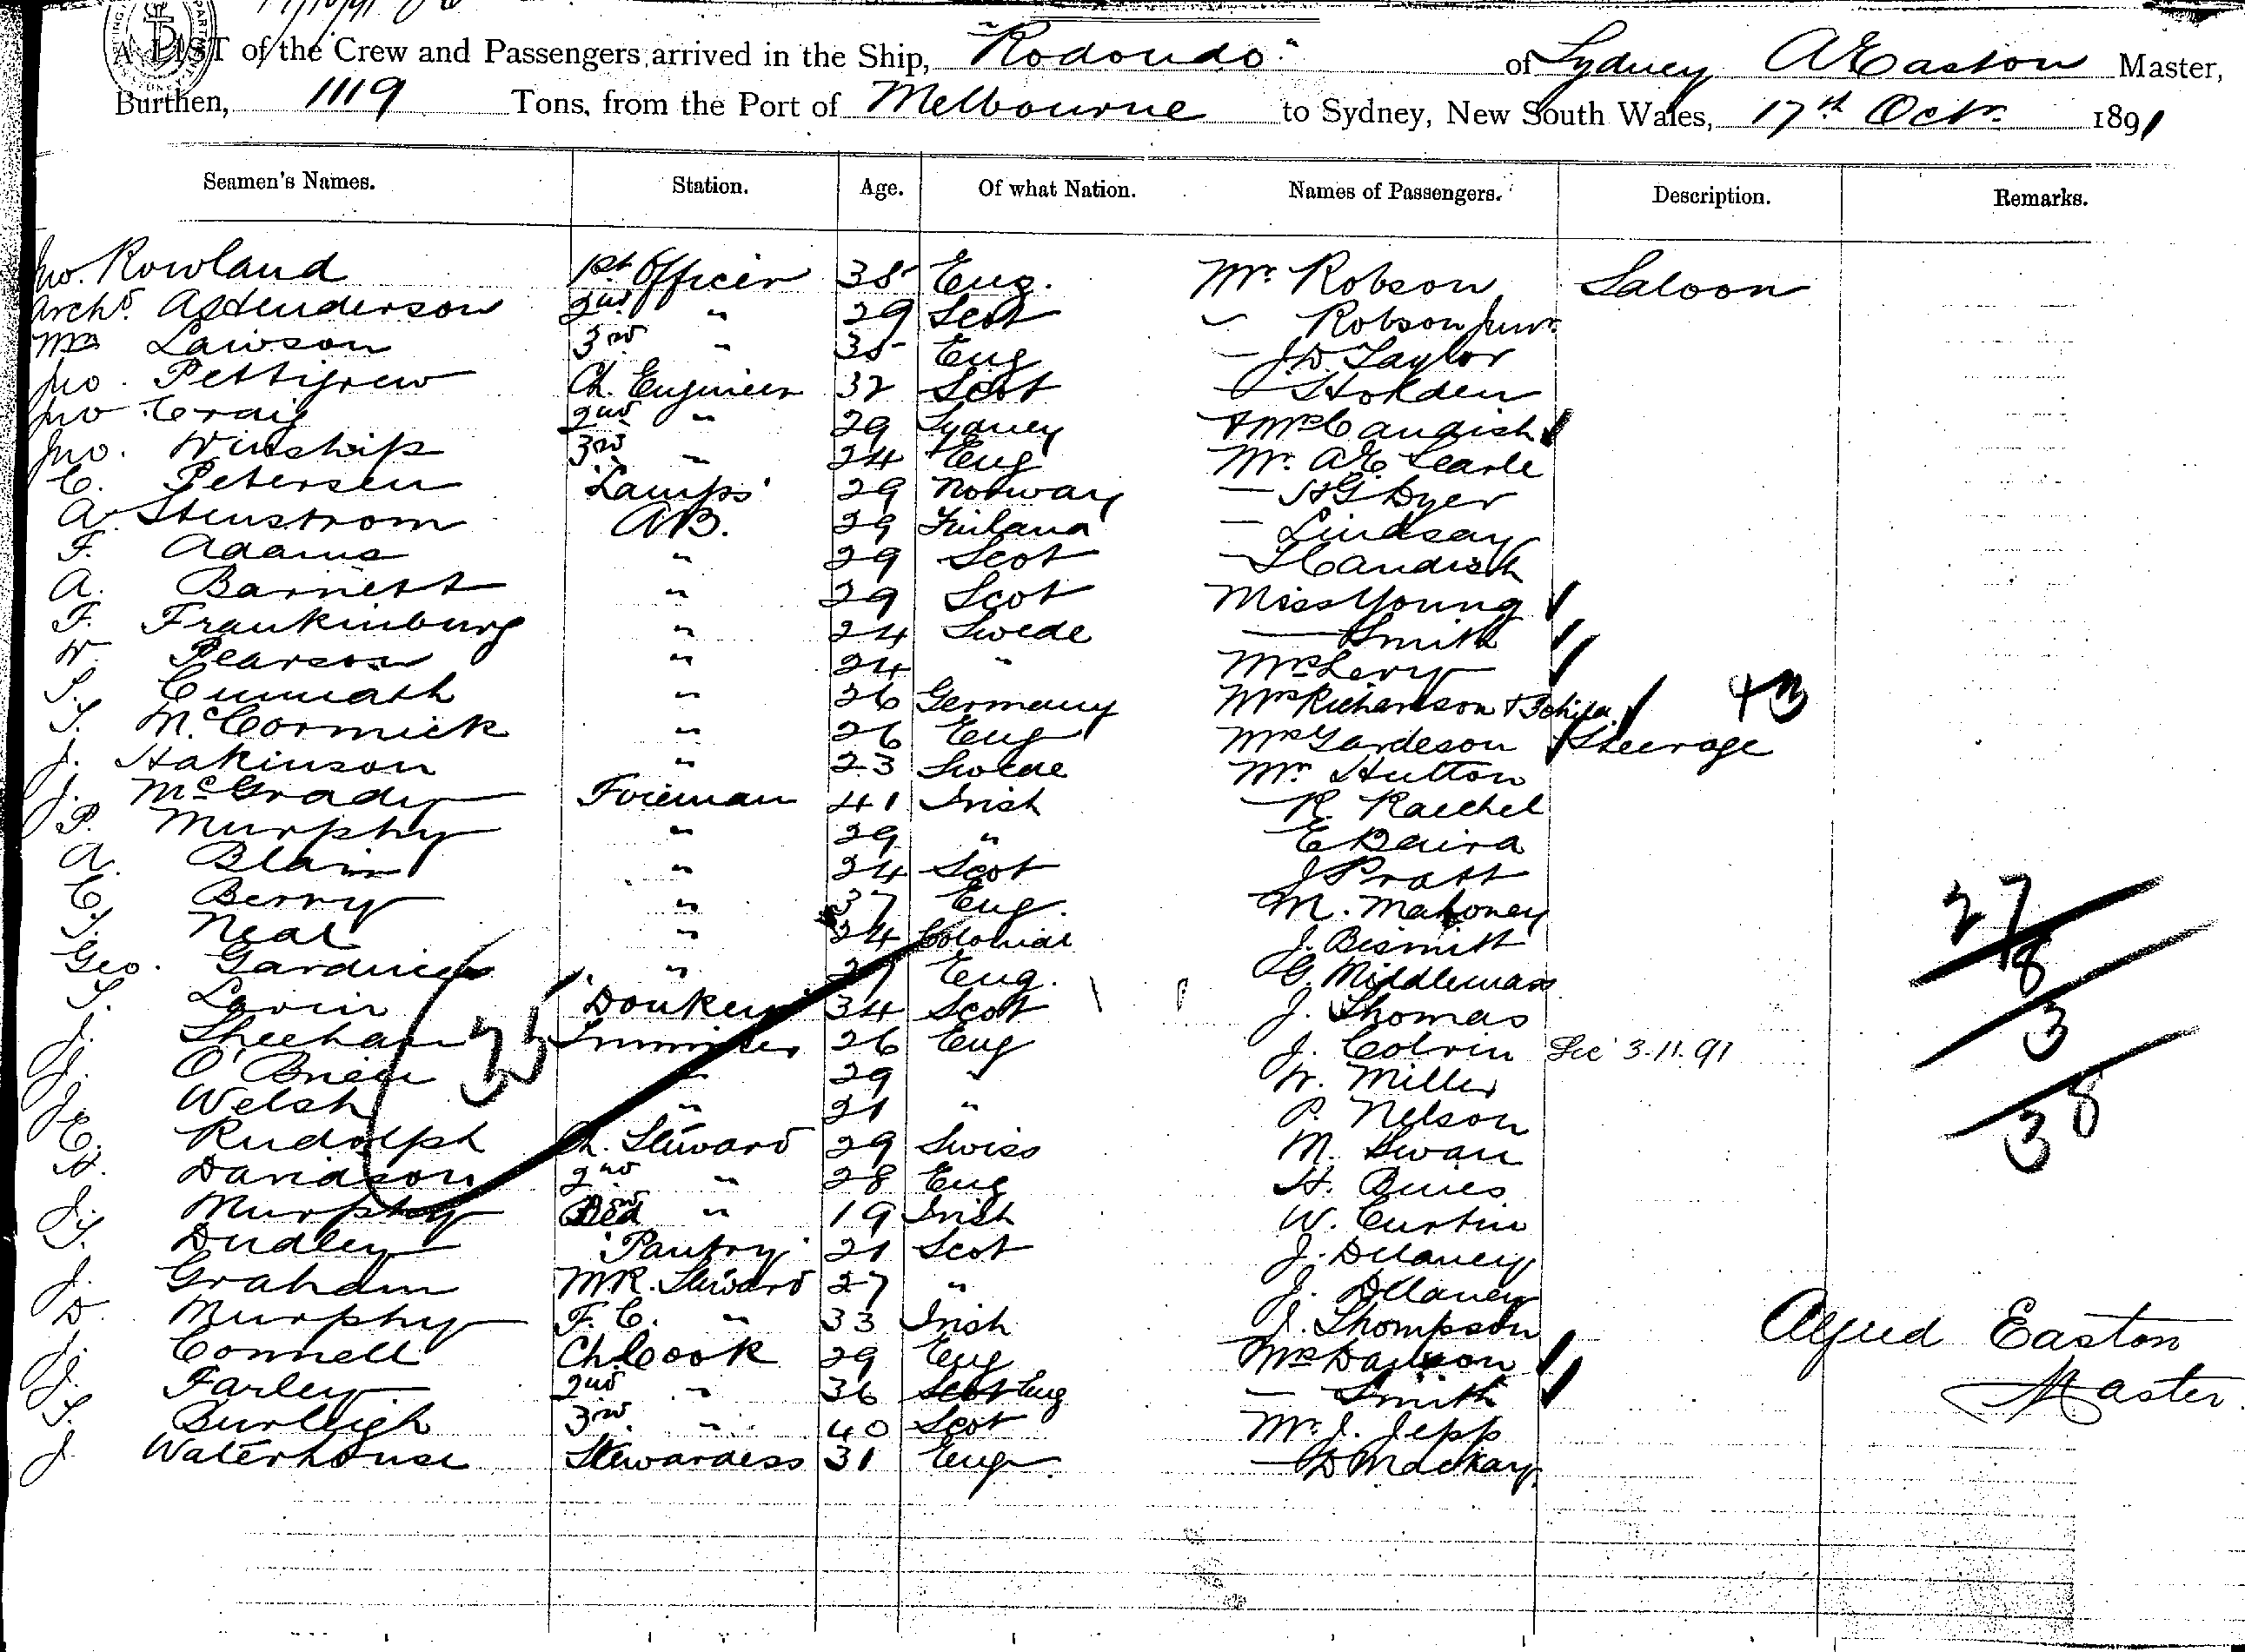 A LIST of the Crew and Passengers arrived in the Ship, "Rodondo" of Sydney A E Easton Master,
Burthen, 1119 Tons, from the Port of Melbourne to Sydney, New South Wales, 17th Octr. 1891
Seamen's Names. Station. Age. Of what Nation. Names of Passengers. Description. Remarks.
Jno. Rowland 1st Officer 35 Eng. Mr. Robson Saloon
Archd. Henderson 2nd " 29 Scot " Robson Junr.
Lawson 3rd " 35 Eng — J.D. Taylor
Jno. Pettigrew Ch. Engineer 32 Scot — Holden
Jno. Craig 2nd " 29 Sydney & Mrs Candish
Jno. Winship 3rd " 24 Eng Mr. A E Searle
C. Petersen 'Lamps' 29 Norway — H G Dyer
A. Stenstrom A.B. 29 Finland — Lindsay
F. Adams " 29 Scot — Candish
A. Barnett " 29 Scot Miss Young
F. Frankinburg " 24 Swede — Smith
W. Pearson " 24 " Mrs Levy
S. " 26 Germany Mrs Richardson & 3 child. 43
T. McCormick " 26 Eng Mrs Gardeson Steerage
J. Hakinson " 23 Swede Mr. Hutton
J. McGrady Fireman 41 Irish — R. Raechel
P. Murphy " 29 " E Baird
A. Blain " 24 Scot J Pratt
C. Berry " 37 Eng. M. Mahoney
T. Neal " 24 Colonial J. Bismitt
Geo. Gardiner " 27 Eng. G. Middlemass
T. Lavin "Donkey" 34 Scot J. Thomas
J. Sheehan 35 Trimmer 26 Eng J. Colvin See 3.11.91
J. O'Brien " 29 " W. Miller
J. Welsh " 21 " P. Nelson
E. Rudolph Ch. Steward 29 Swiss M. Swan
H. Davidson 2nd " 28 Eng H. Bines
J. Murphy 3rd " 19 Irish W. Curtin
T. Dudley 'Pantry' 21 Scot J. Delaney
J. Graham M.R. Steward 27 " J. Delaney
D. Murphy F.C. " 33 Irish J. Thompson
J. Connell Ch. Cook 29 Eng Mrs Davison
J. Farley 2nd " 36 Scot Eng — Smith
T. Burleigh 3rd " 40 Scot Mr. J. Jepp
J. Waterhouse Stewardess 31 Eng. — D Mackay
27
8
3
38
Alfred Easton
Master